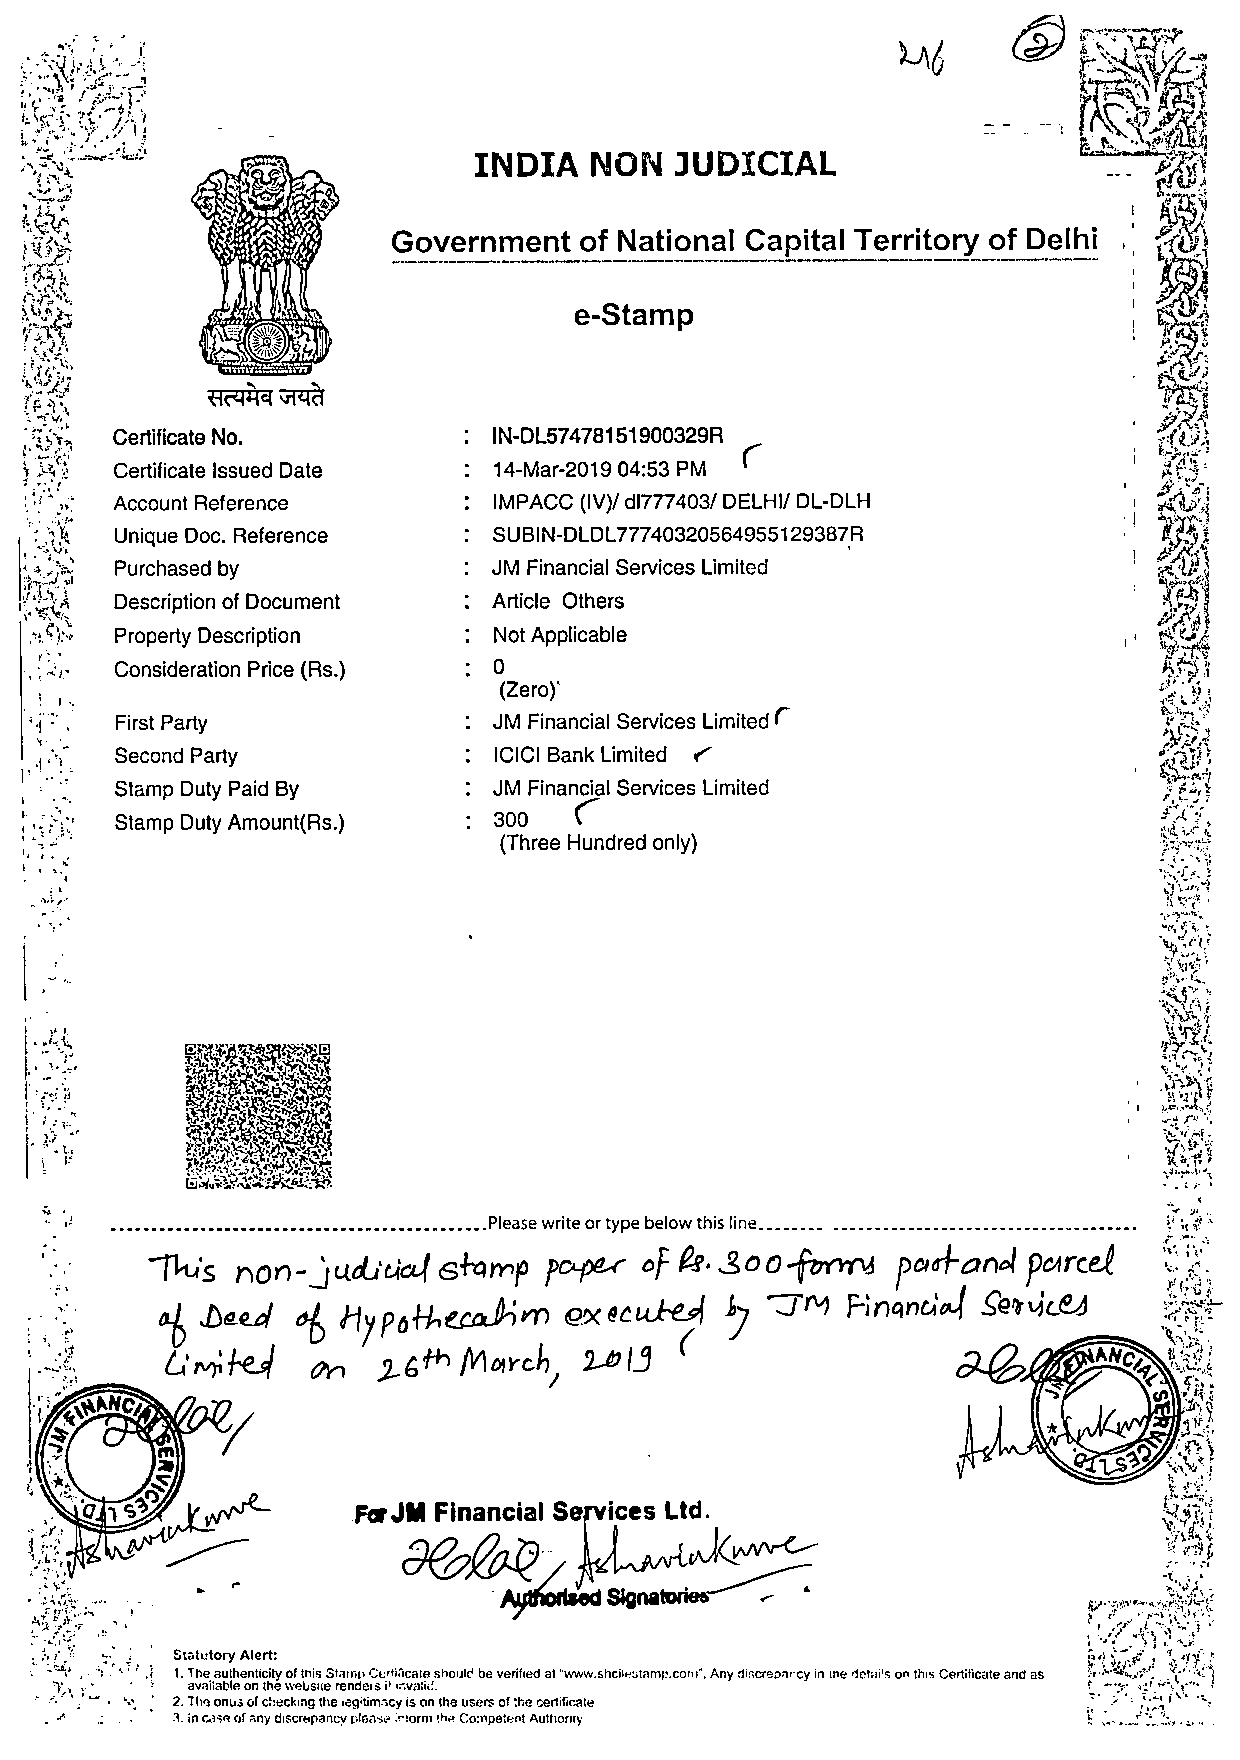 2
INDIA NON JUDICIAL
Government of National Capital Territory of Delhi
e-Stamp
सत्यमेव जयते
Certificate No. : IN-DL57478151900329R
Certificate Issued Date : 14-Mar-2019 04:53 PM
Account Reference : IMPACC (IV)/ dl777403/ DELHI/ DL-DLH
Unique Doc. Reference : SUBIN-DLDL77740320564955129387R
Purchased by : JM Financial Services Limited
Description of Document : Article Others
Property Description : Not Applicable
Consideration Price (Rs.) : 0
(Zero)
First Party : JM Financial Services Limited
Second Party : ICICI Bank Limited
Stamp Duty Paid By : JM Financial Services Limited
Stamp Duty Amount(Rs.) : 300
(Three Hundred only)
Please write or type below this line
This non-judicial stamp paper of Rs. 300 forms part and parcel
of Deed of Hypothecation executed by JM Financial Services
Limited on 26th March, 2019
JM FINANCIAL SERVICES LTD.
JM FINANCIAL SERVICES LTD.
For JM Financial Services Ltd.
Authorised Signatories
Statutory Alert:
1. The authenticity of this Stamp Certificate should be verified at "www.shcilestamp.com". Any discrepancy in the details on this Certificate and as
available on the website renders it invalid.
2. The onus of checking the legitimacy is on the users of the certificate
3. In case of any discrepancy please inform the Competent Authority